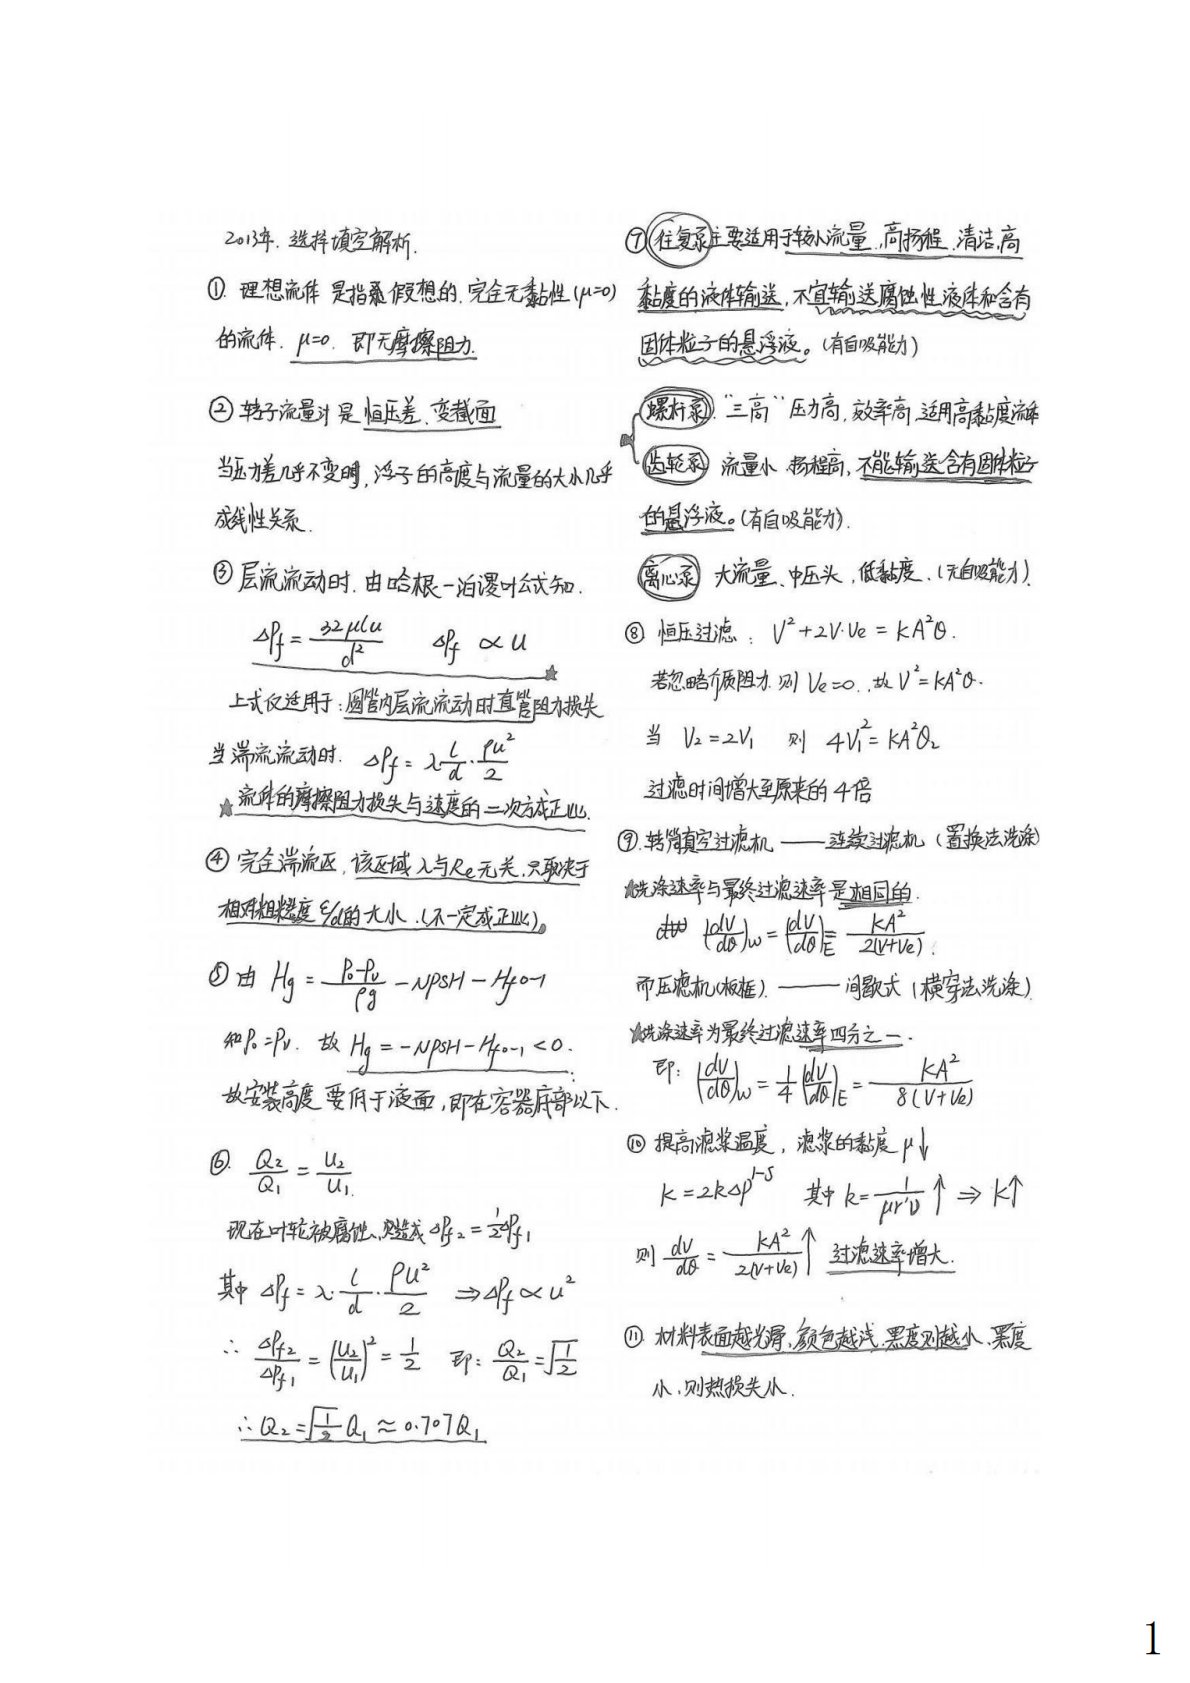 2013年. 选择填空解析.
① 理想流体 是指假想的. 完全无黏性 (μ=0)
的流体. μ=0. 即无摩擦阻力.
② 转子流量计是 恒压差、变截面
当压力差几乎不变时, 浮子的高度与流量的大小几乎
成线性关系.
③ 层流流动时. 由哈根-泊谡叶公式知.
ΔPf = 32μlu/d² ΔPf ∝ u
上式仅适用于: 圆管内层流流动时直管阻力损失
当湍流流动时. ΔPf = λ l/d · ρu²/2
★流体的摩擦阻力损失与速度的二次方成正比.
④ 完全湍流区, 该区域 λ与Re无关. 只取决于
相对粗糙度 ε/d的大小. (不一定成正比)。
⑤ 由 Hg = (P₀-Pv)/ρg - NPSH - Hf0-1
知P₀=Pv. 故 Hg = -NPSH - Hf0-1 < 0.
故安装高度要低于液面, 即在容器底部以下.
⑥. Q₂/Q₁ = u₂/u₁.
现在叶轮被腐蚀, 造成 ΔPf₂ = ½ΔPf₁
其中 ΔPf = λ · l/d · ρu²/2 ⇒ ΔPf ∝ u²
∴ ΔPf₂/ΔPf₁ = (u₂/u₁)² = 1/2 即: Q₂/Q₁ = √(1/2)
∴ Q₂ = √(1/2) Q₁ ≈ 0.707Q₁
⑦ 往复泵主要适用于较小流量, 高扬程, 清洁, 高
黏度的液体输送, 不宜输送腐蚀性液体和含有
固体粒子的悬浮液。(有自吸能力)
螺杆泵 “三高” 压力高, 效率高, 适用高黏度流体
齿轮泵 流量小, 扬程高, 不能输送含有固体粒子
的悬浮液。(有自吸能力).
离心泵 大流量、中压头, 低黏度. (无自吸能力).
⑧ 恒压过滤: V²+2V·Ve = KA²θ.
若忽略介质阻力. 则 Ve=0. 故 V²=KA²θ.
当 V₂=2V₁ 则 4V₁²=KA²θ₂
过滤时间增大至原来的4倍
⑨. 转筒真空过滤机 —— 连续过滤机 (置换法洗涤)
★洗涤速率与最终过滤速率是相同的.
(dV/dθ)w = (dV/dθ)E = KA²/2(V+Ve).
而压滤机(板框). —— 间歇式 (横穿法洗涤).
★洗涤速率为最终过滤速率四分之一.
即: (dV/dθ)w = 1/4 (dV/dθ)E = KA²/8(V+Ve)
⑩ 提高滤浆温度, 滤浆的黏度μ↓
K=2kΔP^(1-S) 其中 k=1/μr'υ ↑ ⇒ K↑
则 dV/dθ = KA²/2(V+Ve) ↑ 过滤速率增大.
⑪ 材料表面越光滑, 颜色越浅, 黑度则越小、黑度
小, 则热损失小.
1